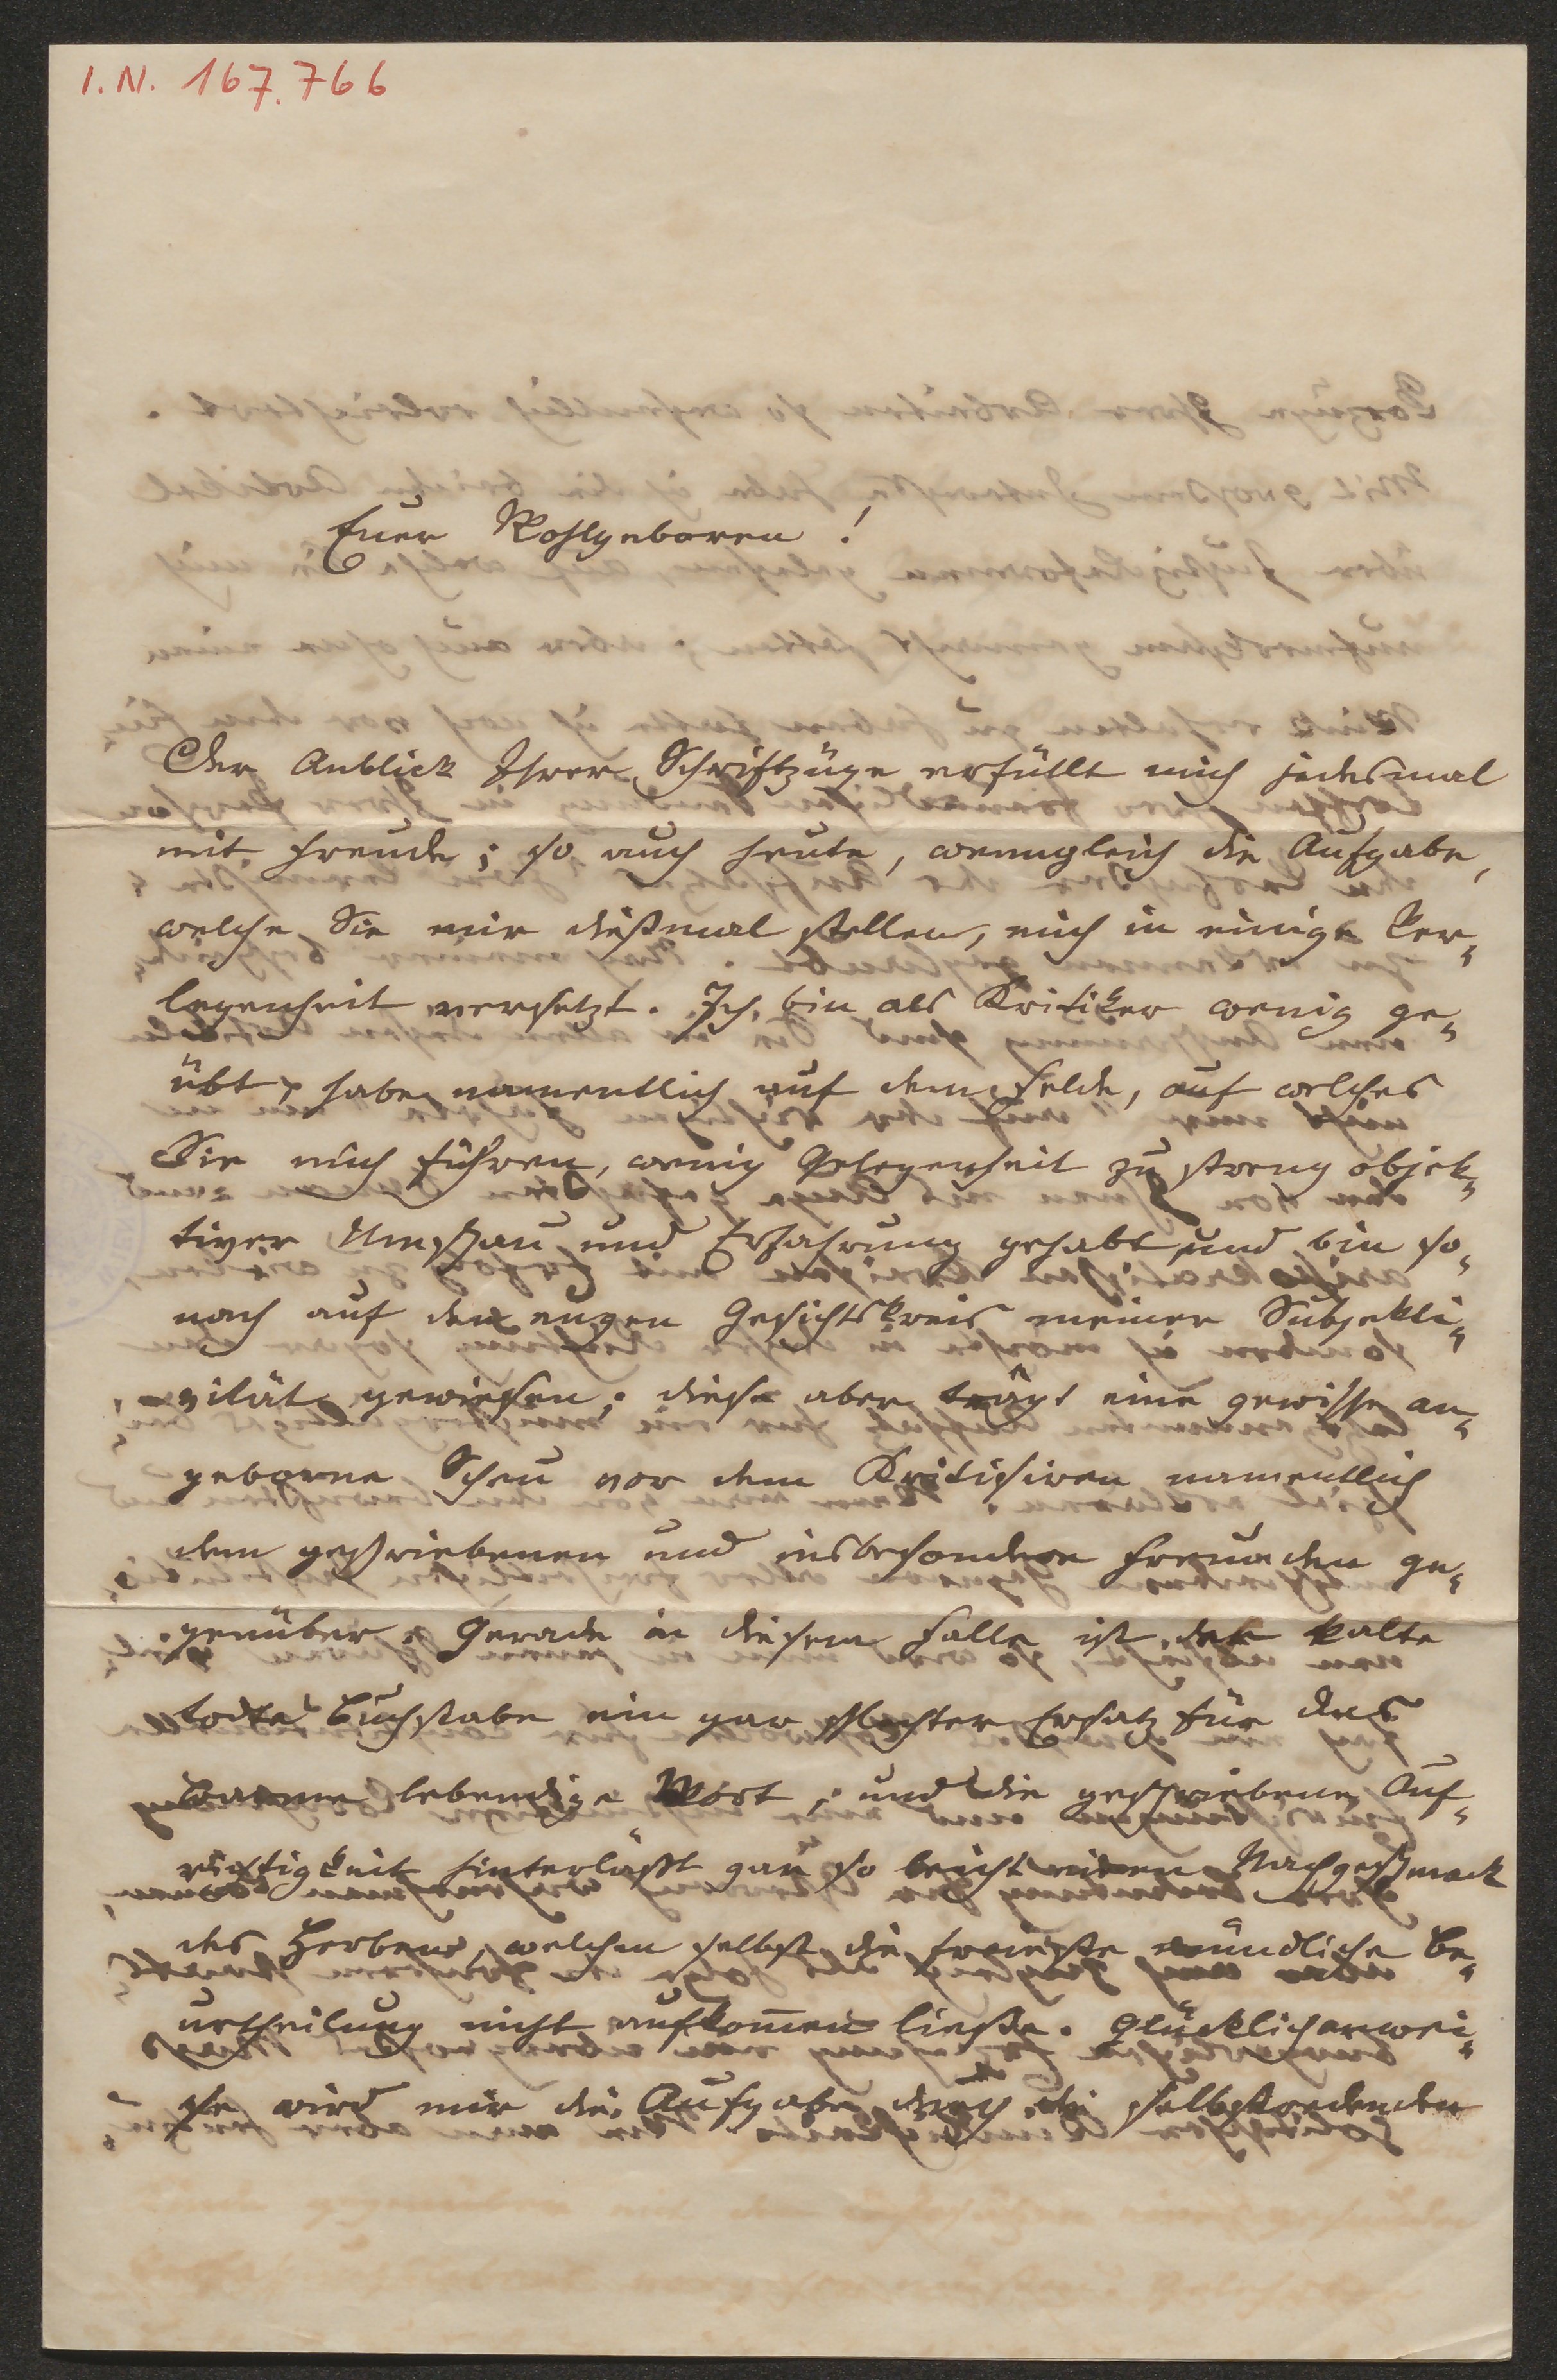 I.N. 167.766
Euer Wohlgeboren!
Der Anblick Ihrer Schriftzüge erfüllt mich jedesmal
mit Freude; so auch heute, wenngleich die Aufgabe,
welche Sie mir dießmal stellen, mich in einige Ver-
legenheit versetzt. Ich bin als Kritiker wenig ge-
übt, habe namentlich auf dem Felde, auf welches
Sie mich führen, wenig Gelegenheit zu streng objek-
tiver Umschau und Erfahrung gehabt und bin so-
nach auf den engen Gesichtskreis meiner Subjekti-
vität gewiesen; diese aber trägt eine gewisse an-
geborne Scheu vor dem Kritisiren namentlich
dem geschriebenen und insbesondere Freunden ge-
genüber. Gerade in diesem Falle ist der kalte
todte Buchstabe ein gar schlechter Ersatz für das
warme lebendige Wort, und die geschriebene Auf-
richtigkeit hinterläßt gar so leicht einen Nachgeschmack
des Herben, welchen selbst die freieste mündliche Be-
urtheilung nicht aufkom̄en ließe. Glücklicherwei-
se wird mir die Aufgabe durch die selbstredenden